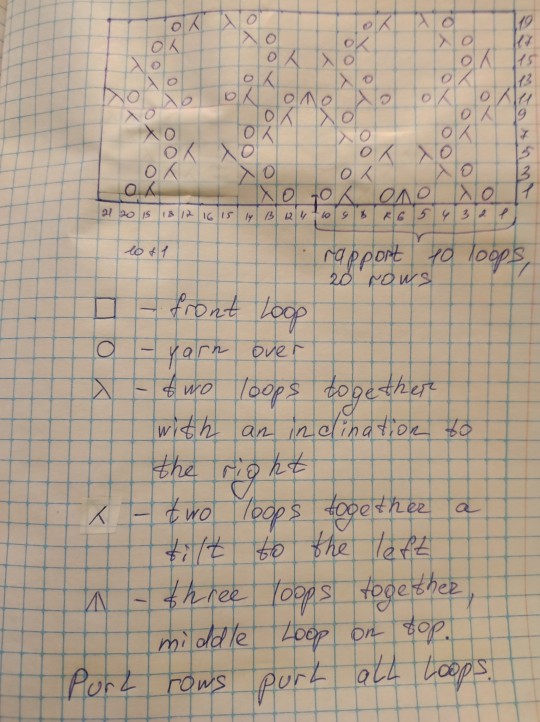 19
17
15
13
11
9
7
5
3
1
21 20 19 18 17 16 15 14 13 12 11 10 9 8 7 6 5 4 3 2 1
10+1
rapport 10 loops,
20 rows
— front loop
— yarn over
— two loops together
with an inclination to
the right
— two loops together a
tilt to the left
— three loops together,
middle loop on top.
Purl rows purl all loops.